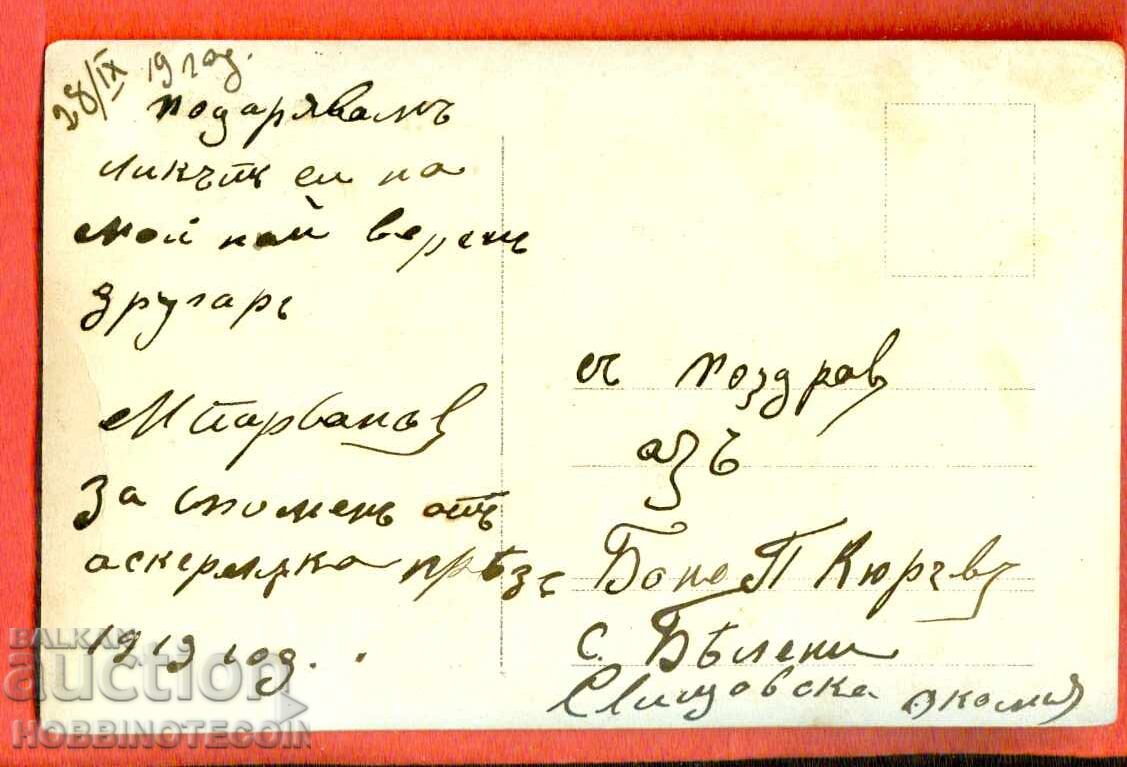 28/IX 19 год.
подарявамъ
ликътъ си на
мой най веренъ
другарь
М Парвановъ
За споменъ отъ
аскерлука прѣзъ
1919 год..
съ поздрав
азъ
Боне П
с. Бѣлени
Свищовска околия
BALKAN
auction
HOBBINOTECOIN